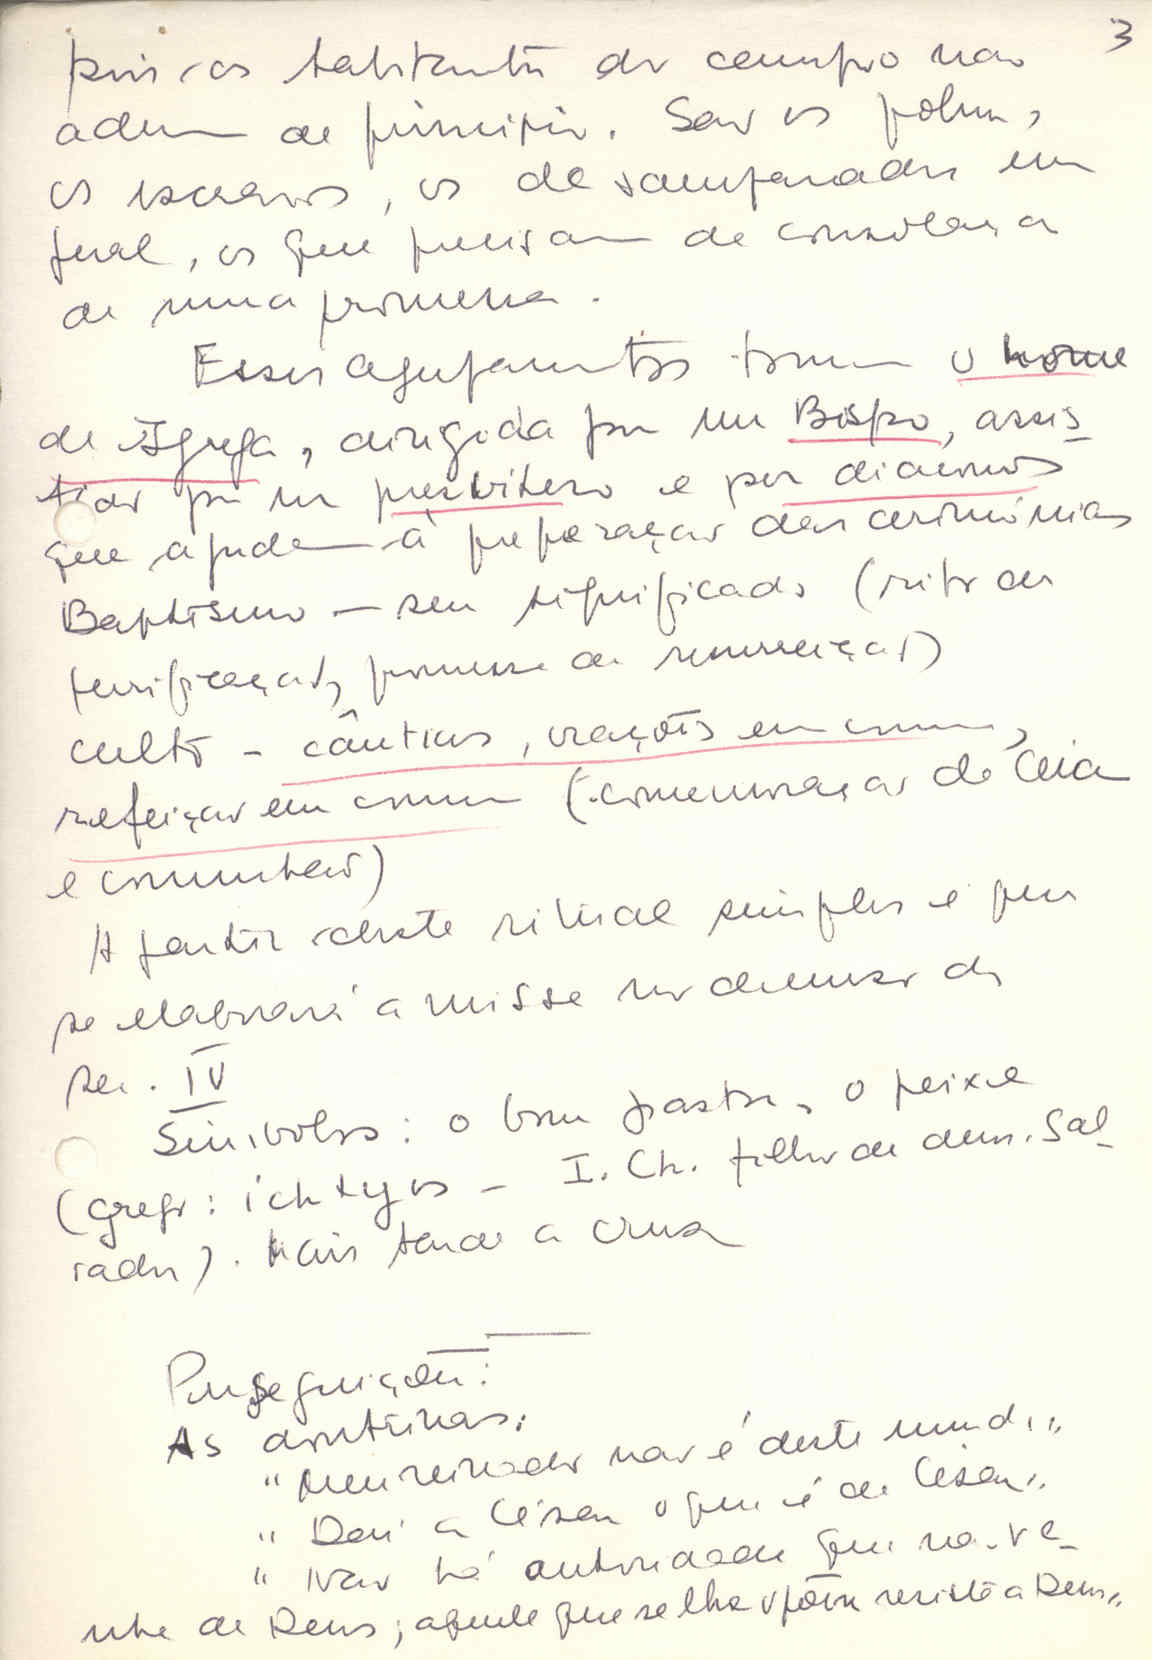 3
pois os habitantes do campo não
aderem de princípio. São os pobres,
os escravos, os desamparados em
geral, os que precisam de consolação
de uma promessa.
Esses agrupamentos tomam o nome
de Igreja, dirigida por um Bispo, assis-
tido por um presbítero e por diáconos
que ajudam à preparação das cerimónias
Baptismo – seu significado (rito de
purificação, promessa de ressurreição)
culto – cânticos, orações em comum,
refeição em comum (comemoração da Ceia
e comunhão)
A partir deste ritual simples é que
se elaborará a missa no decurso do
sec. IV
Símbolos: o bom pastor, o peixe
(grego: ichtyos – I. Ch. filho de deus. Sal-
vador). Mais tarde a cruz
Perseguições:
As doutrinas:
"Meu reino não é deste mundo"
"Dai a César o que é de César"
"Não há autoridade que não ve-
nha de Deus; aquele que se lhe opõe resiste a Deus"